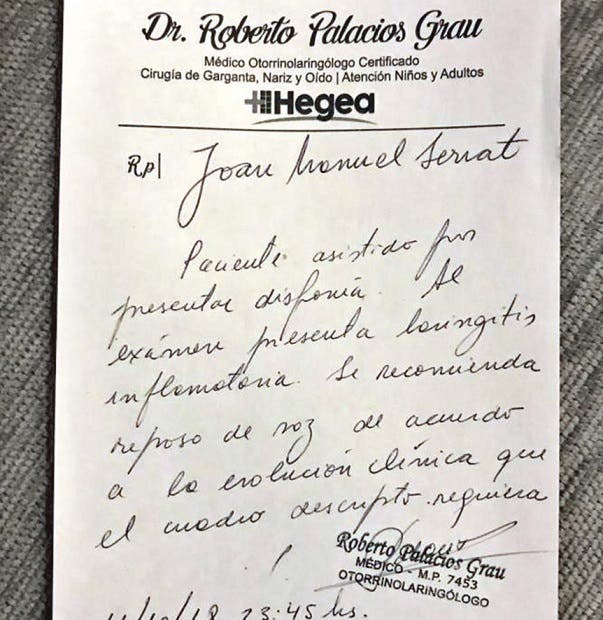 Dr. Roberto Palacios Grau
Médico Otorrinolaringólogo Certificado
Cirugía de Garganta, Nariz y Oído | Atención Niños y Adultos
Hegea
Rp| Joan Manuel Serrat
Paciente asistido por
presentar disfonía. Al
exámen presenta laringitis
inflamatoria. Se recomienda
reposo de voz de acuerdo
a la evolución clínica que
el cuadro descripto requiera
Roberto Palacios Grau
MÉDICO - M.P. 7453
OTORRINOLARINGÓLOGO
23:45 hs.